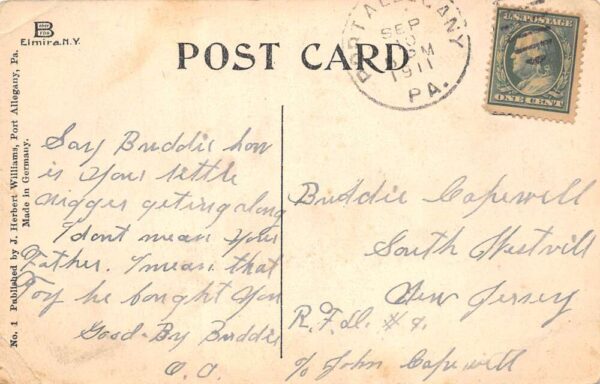 Elmira N.Y.
POST CARD
PORT ALLEGANY
SEP
M
1911
PA.
U.S. POSTAGE
ONE CENT
No. 1 Published by J. Herbert Williams, Port Allegany, Pa.
Made in Germany.
Say Buddie how
is your little
digger geting along
I dont mean your
Father. I mean that
Toy he bought you
Good-By Buddie
O.O.
Buddie Capewell
South Westvill
New Jersey
R.F.D. # 7.
c/o John Capewell